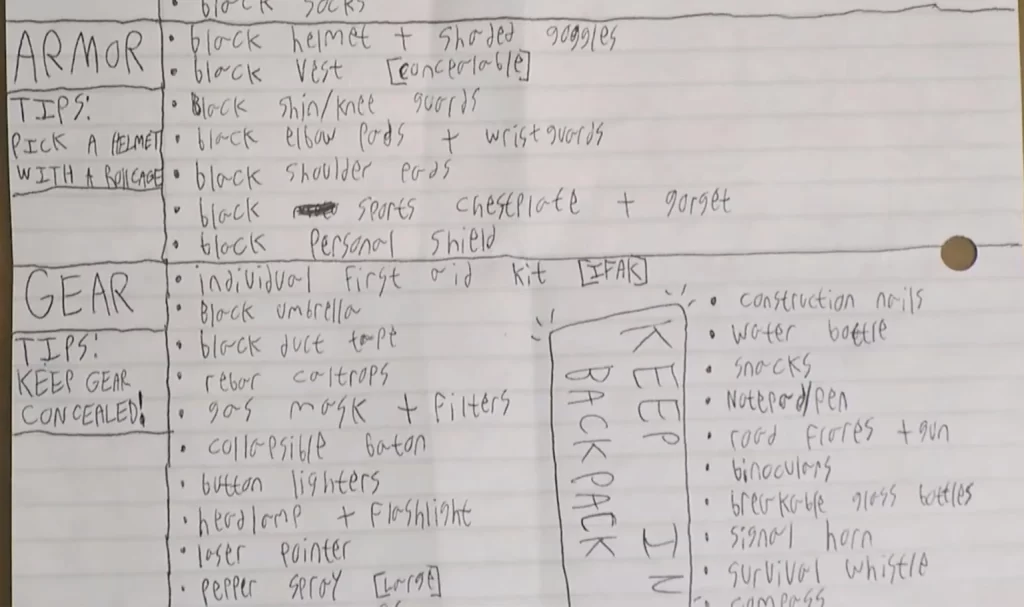 • black socks
ARMOR
TIPS:
PICK A HELMET
WITH A ROLLCAGE
• black helmet + shaded goggles
• black vest [concealable]
• Black shin/knee guards
• black elbow pads + wristguards
• black shoulder pads
• black sports chestplate + gorget
• black personal shield
GEAR
TIPS:
KEEP GEAR
CONCEALED!
• individual first aid kit [IFAK]
• Black umbrella
• black duct tape
• rebar caltrops
• gas mask + filters
• collapsible baton
• button lighters
• headlamp + flashlight
• laser pointer
• pepper spray [Large]
KEEP IN
BACKPACK
• construction nails
• water bottle
• snacks
• Notepad/pen
• road flares + gun
• binoculars
• breakable glass bottles
• signal horn
• survival whistle
• compass